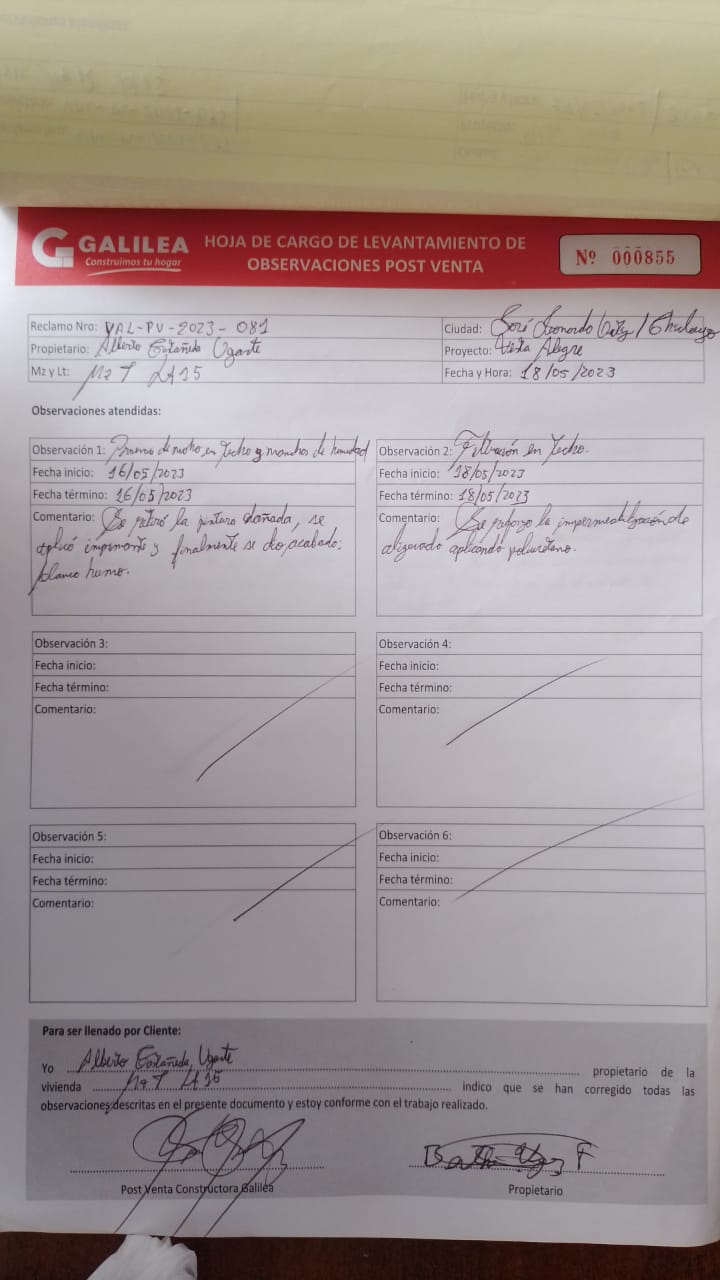 GALILEA
Construimos tu hogar
HOJA DE CARGO DE LEVANTAMIENTO DE
OBSERVACIONES POST VENTA
Nº 000855
Reclamo Nro: VAL-PV-2023-081
Ciudad: José Leonardo Ortiz / Chiclayo
Propietario: Alberto Castañeda Ugarte
Proyecto: Vista Alegre
Mz y Lt: Mz T Lt 15
Fecha y Hora: 18/05/2023
Observaciones atendidas:
Observación 1: Presencia de moho en techo y manchas de humedad
Fecha inicio: 16/05/2023
Fecha término: 16/05/2023
Comentario: Se retiró la pintura dañada, se
aplicó imprimante y finalmente se dio acabado:
blanco humo.
Observación 2: Filtración en techo.
Fecha inicio: 18/05/2023
Fecha término: 18/05/2023
Comentario: Se la impermeabilización de
aplicando poliuretano.
Observación 3:
Fecha inicio:
Fecha término:
Comentario:
Observación 4:
Fecha inicio:
Fecha término:
Comentario:
Observación 5:
Fecha inicio:
Fecha término:
Comentario:
Observación 6:
Fecha inicio:
Fecha término:
Comentario:
Para ser llenado por Cliente:
Yo Alberto Castañeda Ugarte propietario de la
vivienda Mz T Lt 15 indico que se han corregido todas las
observaciones descritas en el presente documento y estoy conforme con el trabajo realizado.
Post Venta Constructora Galilea
Propietario